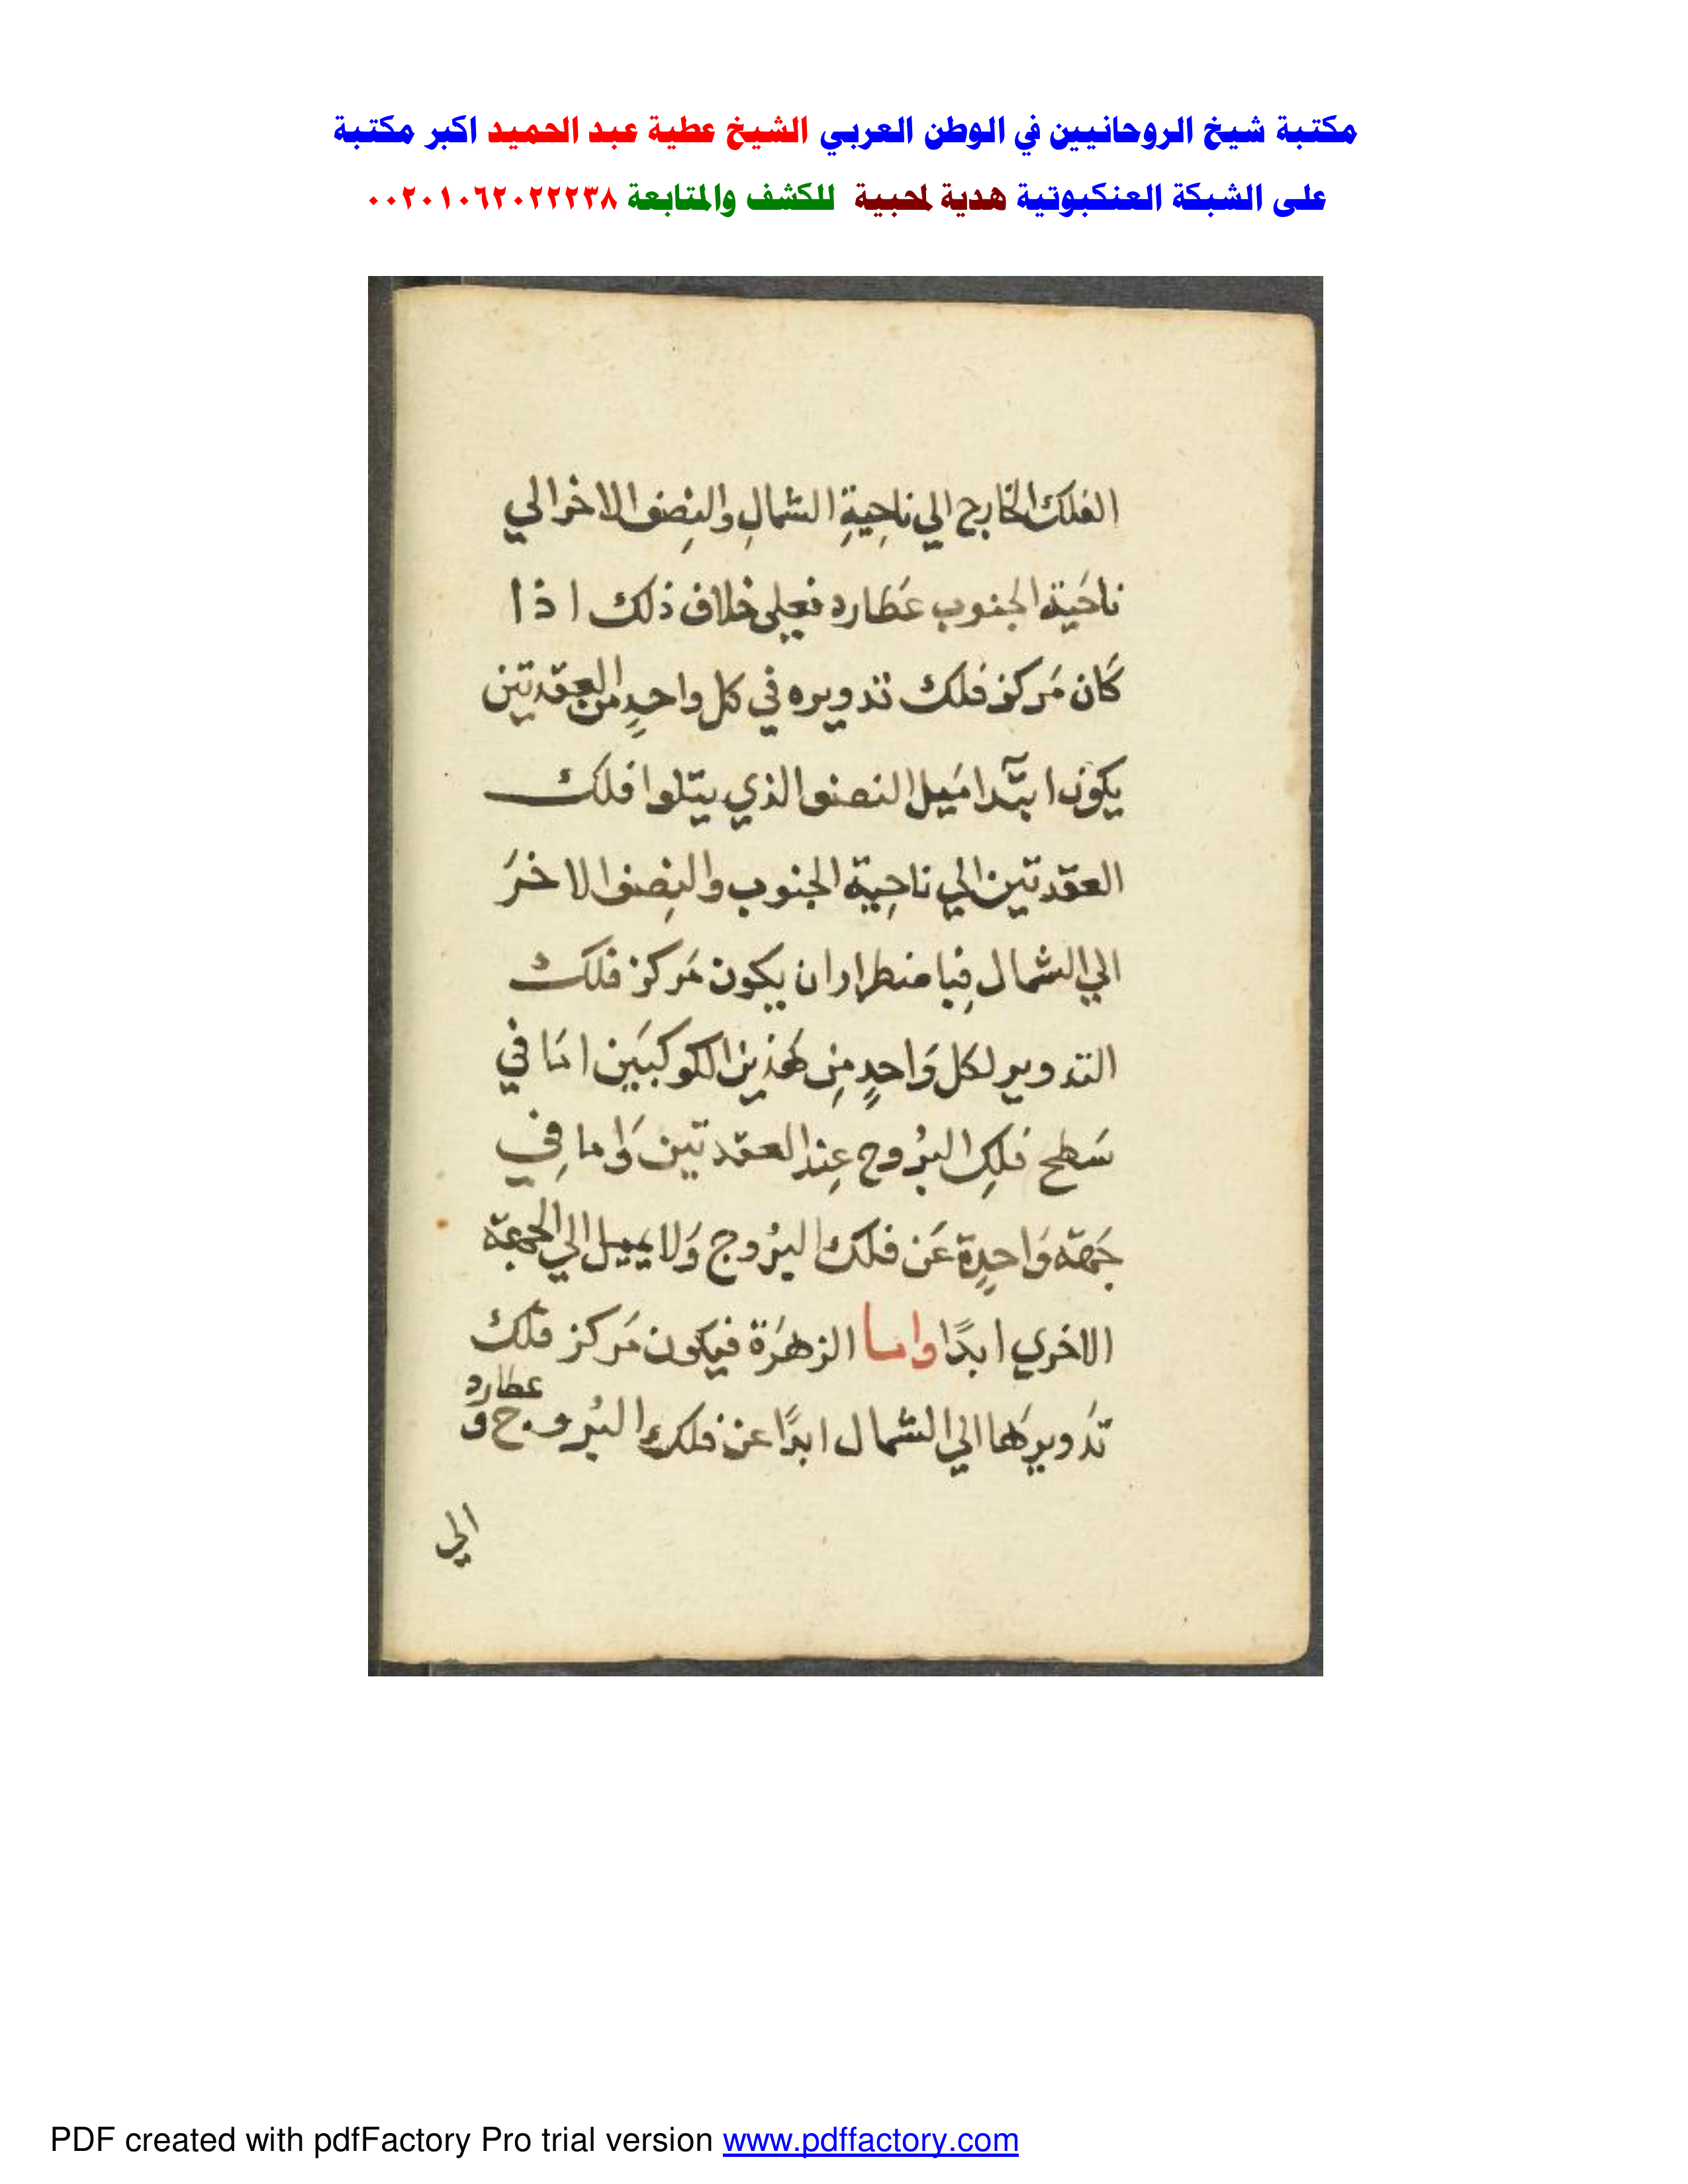 مكتبة شيخ الروحانيين في الوطن العربي الشيخ عطية عبد الحميد اكبر مكتبة
على الشبكة العنكبوتية هدية لمحبية للكشف والمتابعة ٠٠٢٠١٠٦٢٠٢٢٢٣٨
الفلك الخارج الي ناحِيةِ الشمالِ والنِصف الاخر الي
ناحَية الجنوب عَطارد فعلي خلاف ذلك اذا
كَان مَركز فلك تدويره في كل واحدٍ من العقدتين
يكون ابتدآ مَيل النصف الذي يتلوا فلك
العقدتين الي ناحِية الجنوب والنِصف الاخرَ
الي الشمال فِباضطرار ان يكون مَركز فلك
التدوير لكل وَاحدٍ مِن هَذين الكوكبَين امَا في
سَطح فلكِ البُروج عِند العقدتين وَاما فِي
جَهة وَاحدٍة عَن فلك البُروج وَلا يميل الي الجهة
الاخري ابدًا واما الزهَرة فيكون مَركز فلك
تدويرهَا الي الشمال ابدًا عن فلك البُروج وَ
عطارد
الي
PDF created with pdfFactory Pro trial version www.pdffactory.com